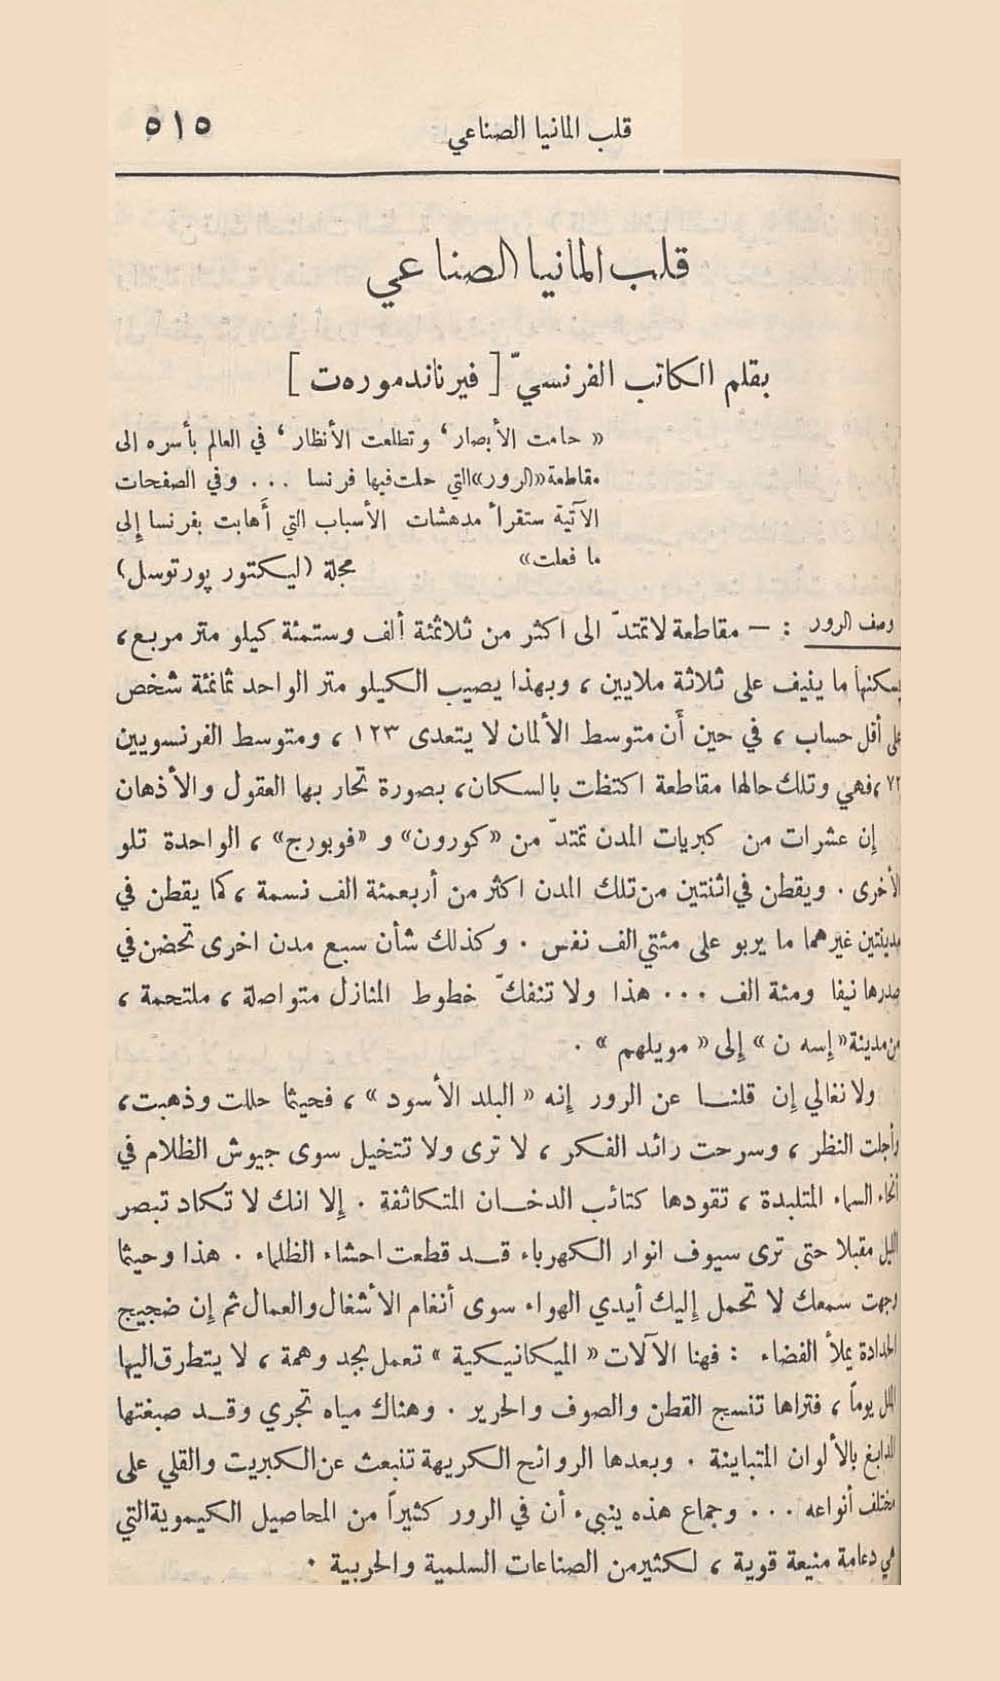 قلب المانيا الصناعي ٥١٥
قلب المانيا الصناعي
بقلم الكاتب الفرنسيّ [ فيرناندموره‌ت ]
« حامت الأبصار، وتطلعت الأنظار، في العالم بأسره الى
مقاطعة «الرور» التي حلت فيها فرنسا ... وفي الصفحات
الآتية ستقرأ مدهشات الأسباب التي أهابت بفرنسا إلى
ما فعلت» مجلة (ليكتور پورتوسل)
وصف الرور : — مقاطعة لا تمتدّ الى اكثر من ثلاثمئة ألف وستمئة كيلو متر مربع،
يسكنها ما ينيف على ثلاثة ملايين ، وبهذا يصيب الكيلو متر الواحد ثمانمئة شخص
على أقل حساب ، في حين أن متوسط الألمان لا يتعدى ١٢٣ ، ومتوسط الفرنسويين
٧٢ ، فهي وتلك حالها مقاطعة اكتظت بالسكان، بصورة تحار بها العقول والأذهان
إن عشرات من كبريات المدن تمتدّ من «كورون» و «فوبورج» ، الواحدة تلو
الأخرى . ويقطن في اثنتين من تلك المدن اكثر من أربعمئة الف نسمة ، كما يقطن في
مدينتين غيرهما ما يربو على مئتي الف نفس . وكذلك شأن سبع مدن اخرى تحضن في
صدرها نيفا ومئة الف ... هذا ولا تنفكّ خطوط المنازل متواصلة ، ملتحمة ،
من مدينة «إسه ن » إلى « مويلهم » .
ولا نغالي إن قلنا عن الرور إنه « البلد الأسود » ، فحيثما حللت وذهبت،
وأجلت النظر ، وسرحت رائد الفكر ، لا ترى ولا تتخيل سوى جيوش الظلام في
أنحاء السماء المتلبدة ، تقودها كتائب الدخان المتكاثفة . إلا انك لا تكاد تبصر
الليل مقبلا حتى ترى سيوف انوار الكهرباء قد قطعت احشاء الظلماء . هذا وحيثما
وجهت سمعك لا تحمل إليك أيدي الهواء سوى أنغام الأشغال والعمال ثم إن ضجيج
الحدادة يملأ الفضاء : فهنا الآلات « الميكانيكية » تعمل بجد وهمة ، لا يتطرق اليها
الملل يوماً ، فتراها تنسج القطن والصوف والحرير . وهناك مياه تجري وقد صبغتها
المدابغ بالألوان المتباينة . وبعدها الروائح الكريهة تنبعث عن الكبريت والقلي على
مختلف أنواعه ... وجماع هذه ينبيء أن في الرور كثيراً من المحاصيل الكيموية التي
هي دعامة منيعة قوية ، لكثير من الصناعات السلمية والحربية .